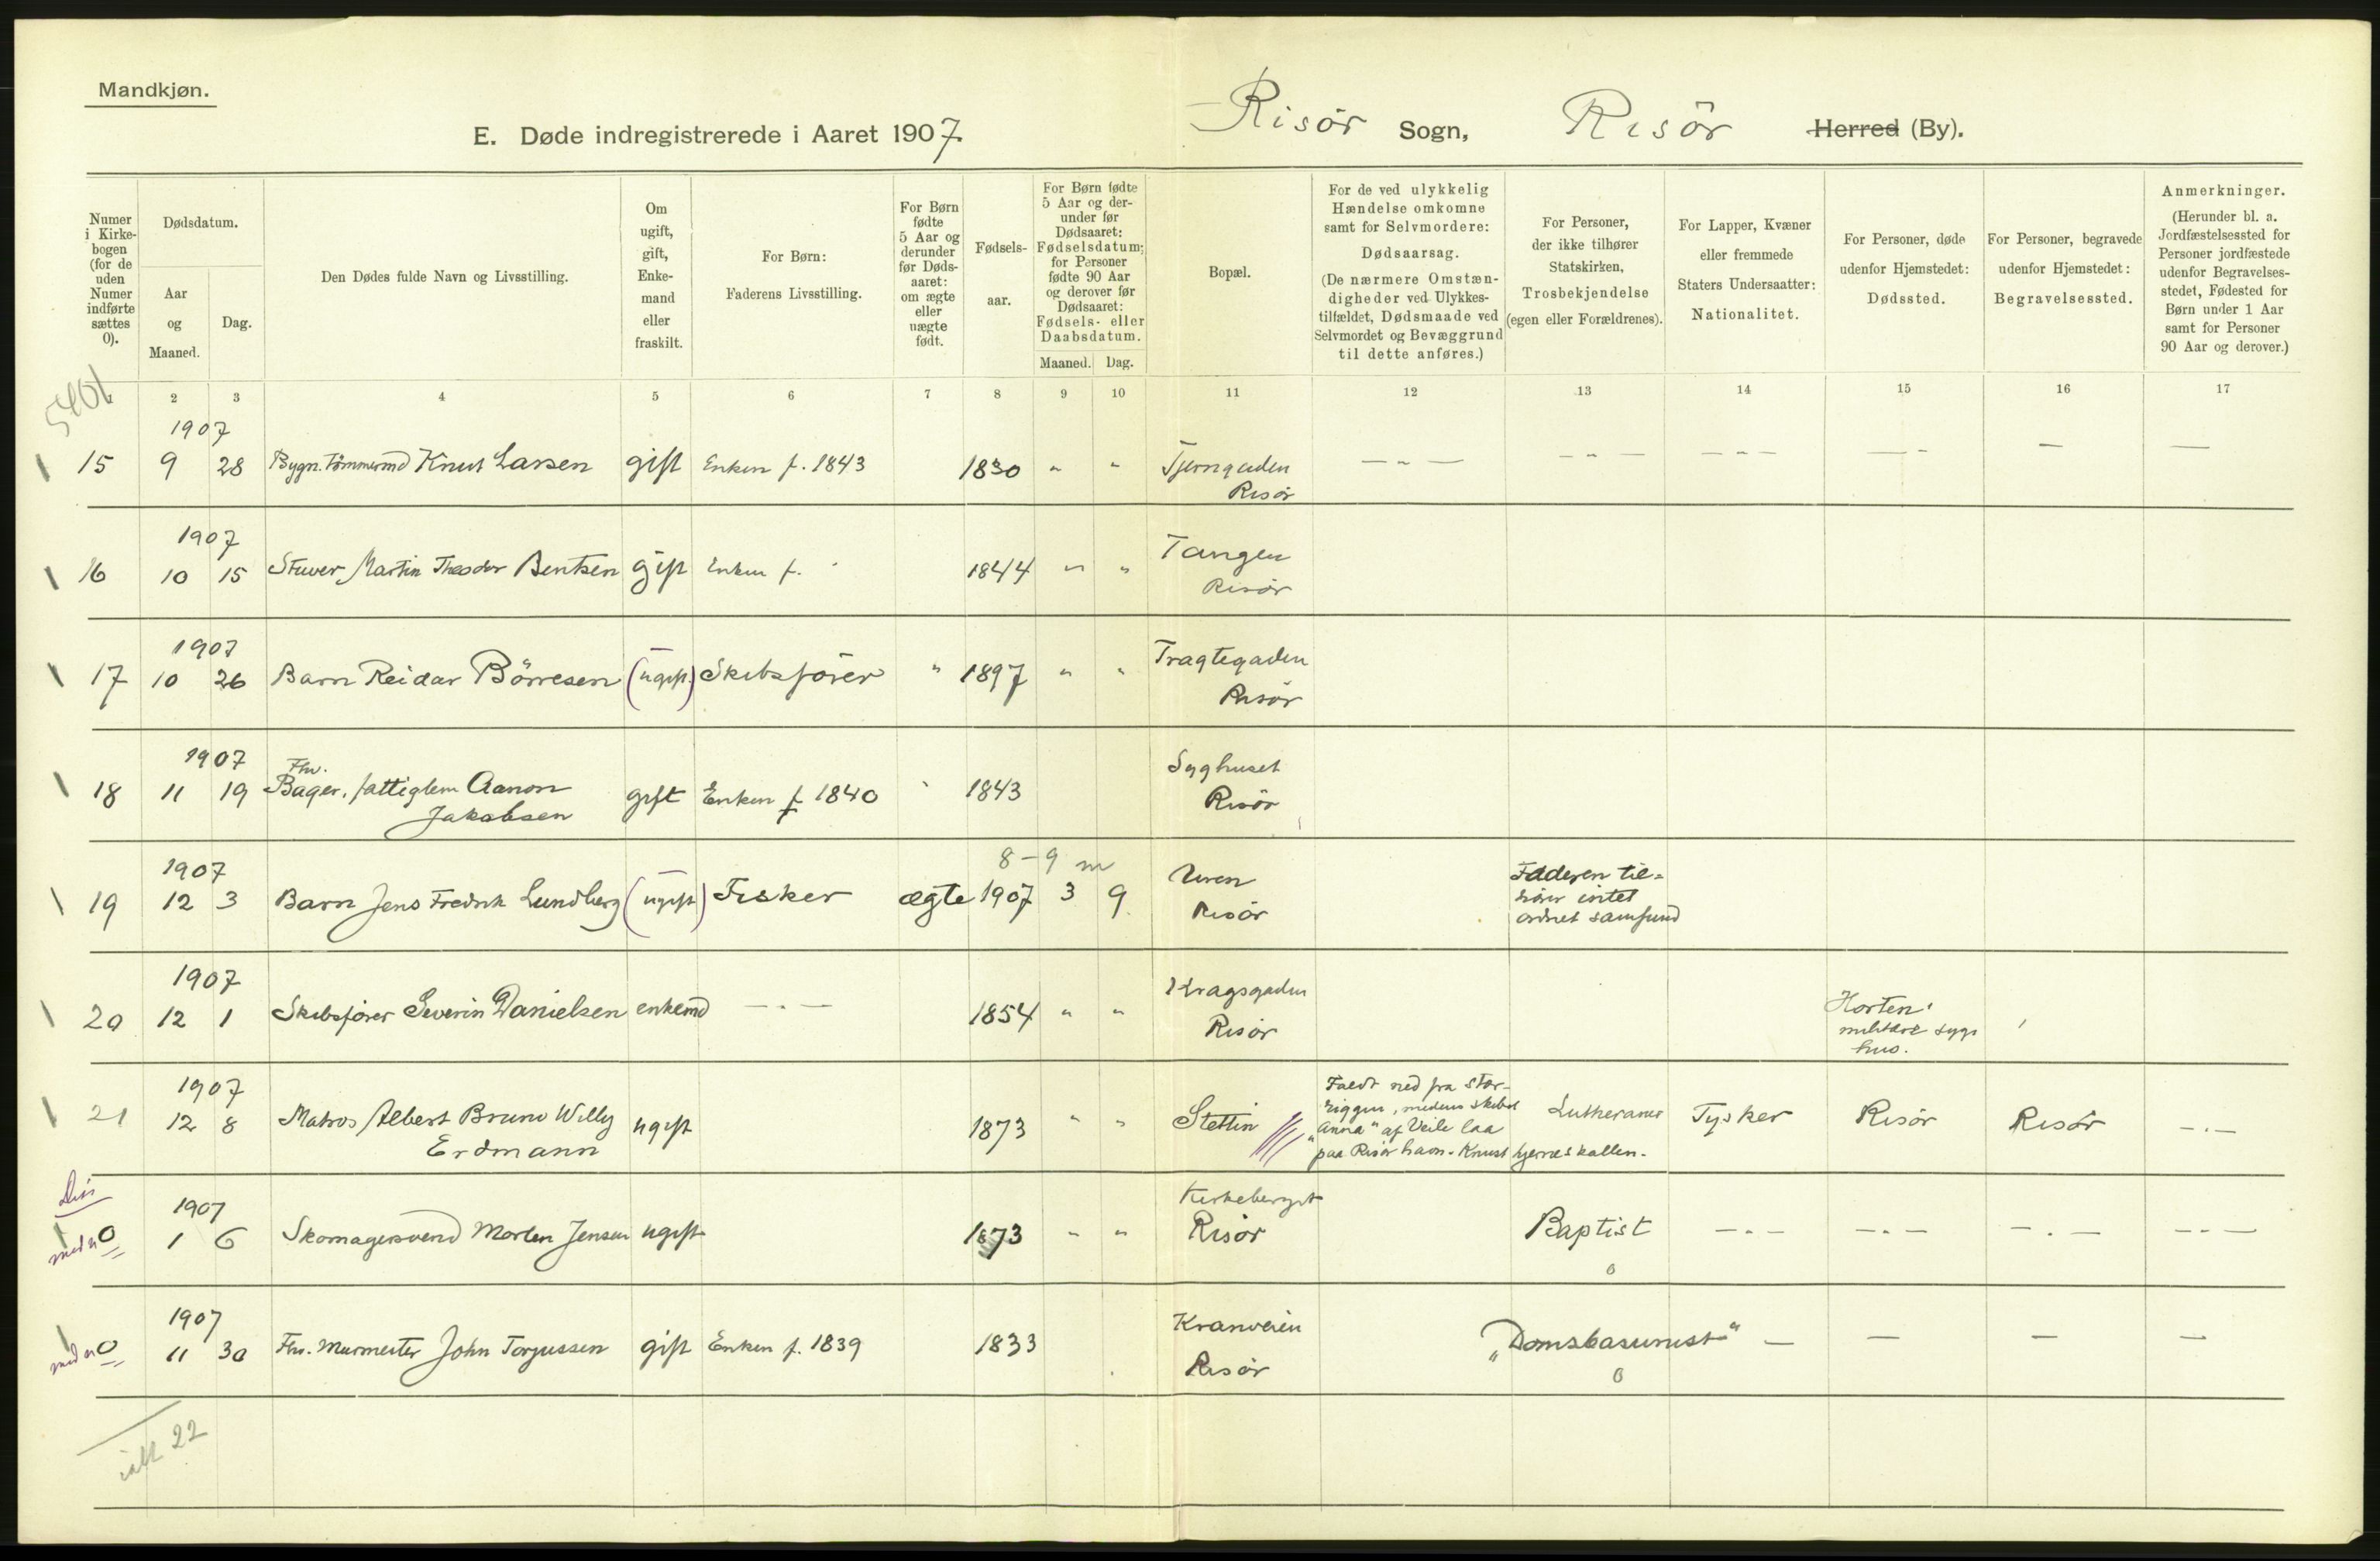 Mandkjøn.
E. Døde indregistrerede i Aaret 1907.
Risör Sogn, Risör Herred (By).
Numer i Kirke-bogen (for de uden Numer indførte sættes 0).
Dødsdatum.
Aar og Maaned.
Dag.
Den Dødes fulde Navn og Livsstilling.
Om ugift, gift, Enke-mand eller fraskilt.
For Børn: Faderens Livsstilling.
For Børn fødte 5 Aar og derunder før Døds-aaret: om ægte eller uægte født.
Fødsels-aar.
For Børn fødte 5 Aar og der-under før Dødsaaret: Fødselsdatum; for Personer fødte 90 Aar og derover før Dødsaaret: Fødsels- eller Daabsdatum.
Maaned. Dag.
Bopæl.
For de ved ulykkelig Hændelse omkomne samt for Selvmordere: Dødsaarsag. (De nærmere Omstæn-digheder ved Ulykkes-tilfældet, Dødsmaade ved Selvmordet og Bevæggrund til dette anføres.)
For Personer, der ikke tilhører Statskirken, Trosbekjendelse (egen eller Forældrenes).
For Lapper, Kvæner eller fremmede Staters Undersaatter: Nationalitet.
For Personer, døde udenfor Hjemstedet: Dødssted.
For Personer, begravede udenfor Hjemstedet: Begravelsessted.
Anmerkninger. (Herunder bl. a. Jordfæstelsessted for Personer jordfæstede udenfor Begravelses-stedet, Fødested for Børn under 1 Aar samt for Personer 90 Aar og derover.)
5401
2 3 4 5 6 7 8 9 10 11 12 13 14 15 16 17
1907
15 9 28 Bygn. Tömmermd Knut Larsen gift Enken f. 1843 1830 " " Tjerngaden
Risör
1907
16 10 15 Stuver Martin Theodor Bentsen gift Enken f. 1844 " " Tangen
Risör
1907
17 10 26 Barn Reidar Börresen (ugift) Skibsförer " 1897 " " Tragtegaden
Risör
1907
Fhv.
18 11 19 Bager, fattiglem Aanon gift Enken f 1840 " 1843 Syghuset
Jakobsen Risör
1907 8-9 m
19 12 3 Barn Jens Fredrik Lundberg (ugift) Fisker ægte 1907 3 9 Uren
Risör
Faderen til-
hörer intet
ordnet samfund
1907
20 12 1 Skibsförer Severin Danielsen enkemd - " - 1854 " " Kragsgaden
Risör
Horten
militære syge
hus.
1907
21 12 8 Matros Albert Bruno Willy ugift 1873 " " Stettin
Erdmann
Faldt ned fra stor-
riggen, medens skibet
"Anna" af Veile laa
paa Risör havn. Knust hjerneskallen.
Lutheraner Tysker Risör Risör - " -
1907
med 0 1 6 Skomagersvend Morten Jensen ugift 1873 " " Kirkeberget
Risör Baptist - " - - " - - " - - " -
0
1907
med 0 11 30 Fhv. Murmester John Torjussen gift Enken f. 1839 1833 Kranveien
Risör "Domsbasunist" - - - -
0
ialt 22